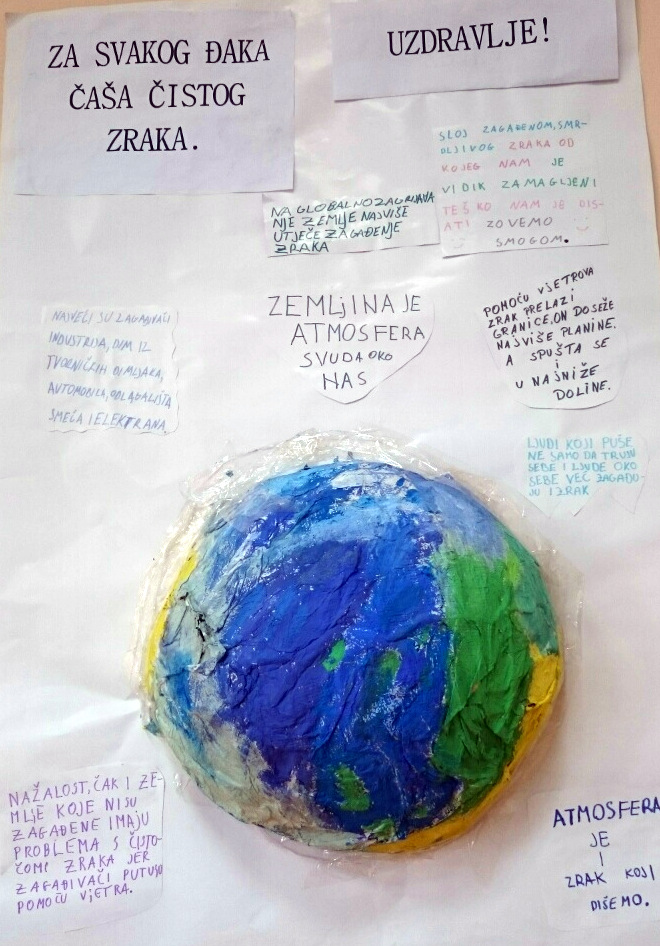 ZA SVAKOG ĐAKA
ČAŠA ČISTOG
ZRAKA.
UZDRAVLJE!
SLOJ ZAGAĐENOM, SMR-
DLJIVOG ZRAKA OD
KOJEG NAM JE
VIDIK ZAMAGLJENI
TEŠKO NAM JE DIS-
ATI ZOVEMO
SMOGOM.
NA GLOBALNO ZAGRIJAVA
NJE ZEMLJE NAJVIŠE
UTJEČE ZAGAĐENJE
ZRAKA
ZEMLJINA JE
ATMOSFERA
SVUDA OKO
NAS
POMOĆU VJETROVA
ZRAK PRELAZI
GRANICE, ON DOSEŽE
NAJVIŠE PLANINE.
A SPUŠTA SE
I
U NAJNIŽE
DOLINE.
NAJVEĆI SU ZAGAĐIVAČI
INDUSTRIJA, DIM IZ
TVORNIČKIH DIMLJAKA,
AUTOMOBILA, ODLAGALIŠTA
SMEĆA I ELEKTRANA.
LJUDI KOJI PUŠE
NE SAMO DA TRUJU
SEBE I LJUDE OKO
SEBE VEĆ ZAGAĐU-
JU I ZRAK
NAŽALOST, ČAK I ZE-
MLJE KOJE NISU
ZAGAĐENE IMAJU
PROBLEMA S ČISTO-
ĆOM ZRAKA JER
ZAGAĐIVAČI PUTUJU
POMOĆU VJETRA.
ATMOSFERA
JE
I
ZRAK KOJI
DIŠEMO.